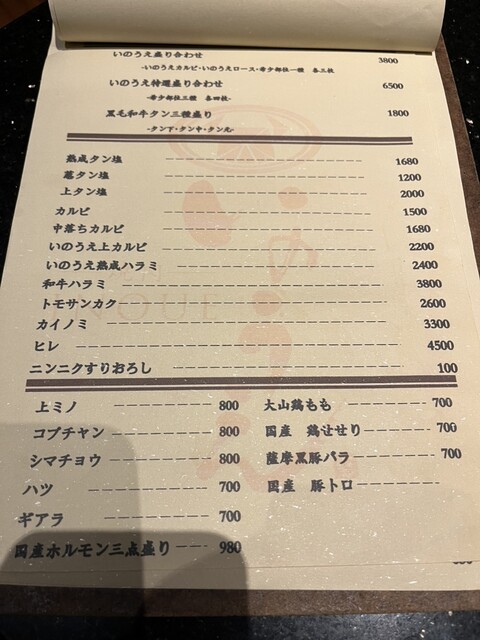 いのうえ盛り合わせ 3800
-いのうえカルビ・いのうえロース・希少部位一種 各三枚
いのうえ特選盛り合わせ 6500
-希少部位三種 各四枚-
黒毛和牛タン三種盛り 1800
-タン下・タン中・タン元-
熟成タン塩 1680
葱タン塩 1200
上タン塩 2000
カルビ 1500
中落ちカルビ 1680
いのうえ上カルビ 2200
いのうえ熟成ハラミ 2400
和牛ハラミ 3800
トモサンカク 2600
カイノミ 3300
ヒレ 4500
ニンニクすりおろし 100
上ミノ 800
コブチャン 800
シマチョウ 800
ハツ 700
ギアラ 700
国産ホルモン三点盛り 980
大山鶏もも 700
国産 鶏せせり 700
薩摩黒豚バラ 700
国産 豚トロ